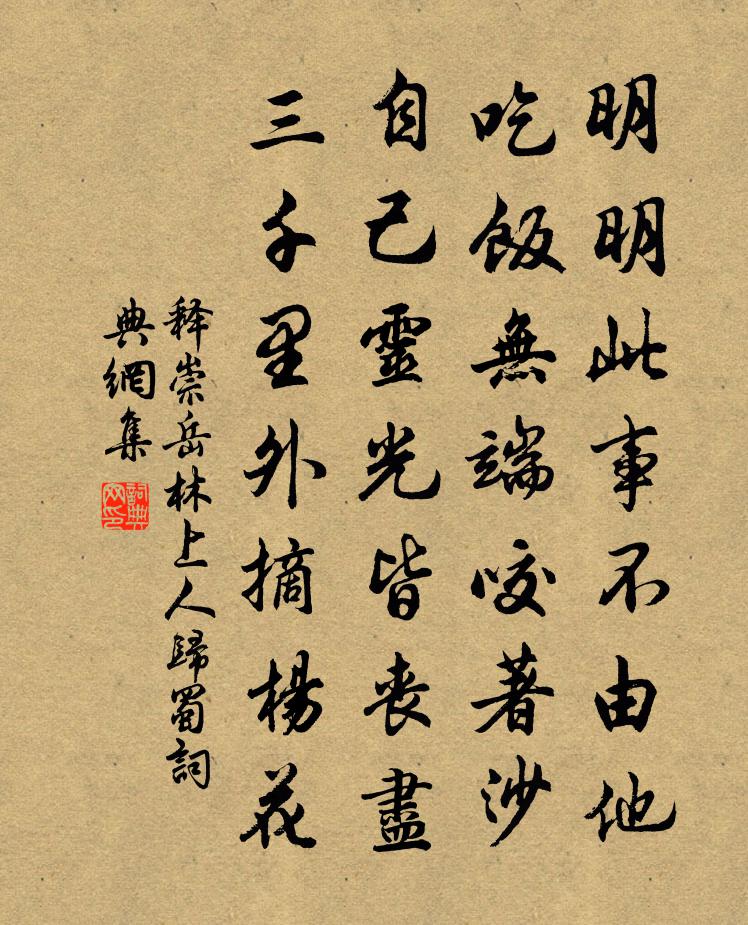 明明此事不由他
吃飯無端咬著沙
自己靈光皆喪盡
三千里外摘楊花
释崇岳林上人歸蜀詞
典網集
詞典
网印